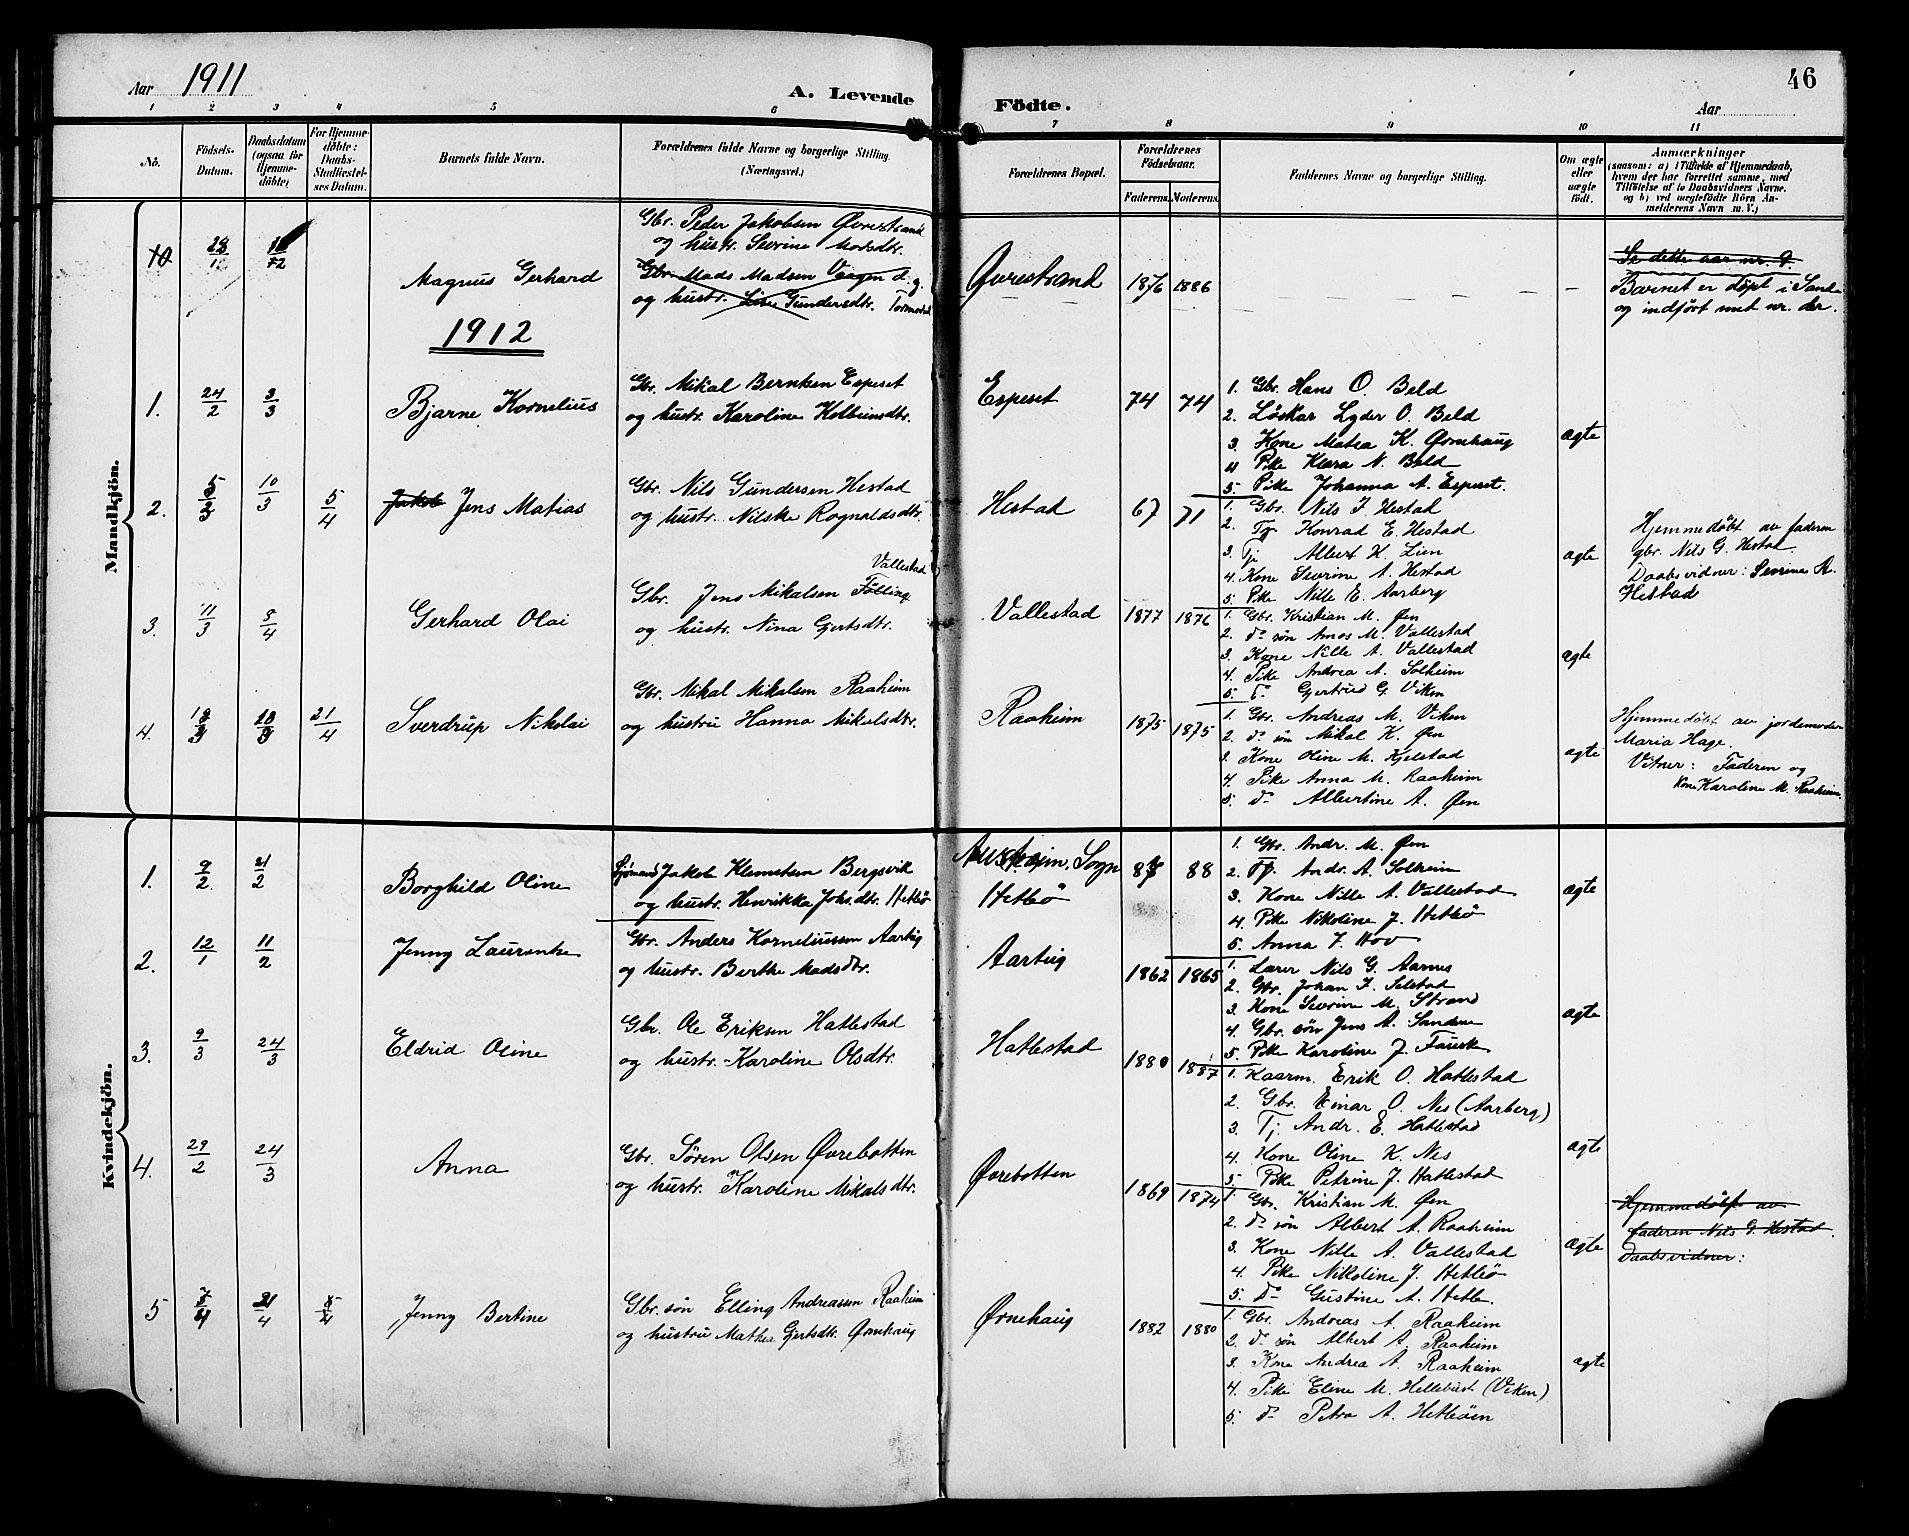 Aar 1911
A. Levende Födte.
Aar
46
1 2 3 4 5 6 7 8 9 10 11
No.
Födsels-Datum.
Daabsdatum (ogsaa for Hjemme-döbte)
For Hjemme-döbte: Daabs-Stadfæstel-ses Datum.
Barnets fulde Navn.
Forældrenes fulde Navne og borgerlige Stilling. (Næringsvei.)
Forældrenes Bopæl.
Forældrenes Födselsaar.
Faderens. Moderens.
Faddernes Navne og borgerlige Stilling.
Om ægte eller uægte födt.
Anmærkninger
(saasom: a) i Tilfælde af Hjemmedaab, hvem der har forrettet samme, med Tilföielse af to Daabsvidners Navne. og b) ved uægtefödte Börn Anmelderens Navn m. V.)
Mandkjön.
10
Magnus Gerhard
Gbr. Peder Jakobsen Øvrestrand
og hustr. Severine Madsdtr.
Gbr. Mads Madsen Vaagen d. g.
og hustr. Lise Gundersdtr.
Øvrestrand 1876 1886
Se dette aar nr. 9.
Barnet er döpt i Sande
og indfört met nr. der.
1912
1. 24/2 3/3
Bjarne Kornelius
Gbr. Mikal Berntsen Espeset
og hustr. Karoline Kolbeinsdtr.
Espeset 74 74
1. Gbr. Hans O. Beld
2. Löskar Lyder O. Beld
3. Kone Matea K. Ørnehaug
4 Pike Klara N. Beld
5. Pike Johanna A. Espeset.
ægte
2. 5/3 10/3 5/4
Jakob Jens Matias
Gbr. Nils Gundersen Hestad
og hustr. Nilske Rognaldsdtr.
Hestad 67 71
1. Gbr. Nils J. Hestad
2. Tj. Konrad E. Hestad
3. Tj Albert H. Lien
4. Kone Severine A. Hestad
5. Pike Nille E. Aarberg
ægte
Hjemmedöbt av faderen
gbr. Nils G. Hestad.
Daabsvidner: Sevrine A.
Hestad
3. 11/3 8/4
Gerhard Olai
Vallestad
Gbr. Jens Mikalsen Fölling
og hustr. Nina Gjertsdtr.
Vallestad 1877 1876
1. Gbr. Kristian M. Øen
2. do sön Amos M. Vallestad
3. Kone Nille A. Vallestad
4. Pike Andrea A. Solheim
5. do Gjertrud G. Viken
ægte
4.
21/4
Sverdrup Nikolai
Gbr. Mikal Mikalsen Raaheim
og hustru Hanna Mikalsdtr.
Raaheim 1875 1875
1. Gbr. Andreas M. Viken
2. do sön Mikal K. Øen
3. Kone Oline M. Kjelstad
4. Pike Anna M. Raaheim
5. do Albertine A. Øen
ægte
Hjemmedöbt av jordemoder
Maria Hage.
Vitner: Faderen og
Kone Karoline M. Raaheim.
Kvindekjön.
1. 9/2. 21/2
Borghild Oline
Sjömand Jakob Klemetsen Bergsvik
og hustr. Henrikka Johs.dtr. Hetleö
Austreim, Sogn
Hetleö
88
1. Gbr. Andr. M. Øen
2. Tj. Andr. A. Solheim
3. Kone Nille A. Vallestad
4. Pike Nikoline J. Hetleö
5. Anna J. Hov
ægte
2. 12/1 11/2
Jenny Laurentse
Gbr. Anders Korneliussen Aartug
og hustr. Berthe Madsdtr.
Aartug 1862 1865
1. Lærer Nils G. Aarnes
2. Gbr. Johan J. Selstad
3. Kone Severine M. Strand
4. Gbr. sön Jens A. Sandene
5. Pike Karoline J. Fauske
ægte
3. 9/3 24/3
Eldrid Oline
Gbr. Ole Eriksen Hatlestad
og hustr. Karoline Olsdtr.
Hatlestad 1880 1887
1. Kaarm. Erik O. Hatlestad
2. Gbr. Einar O. Nes (Aarberg)
3. Tj. Andr. E. Hatlestad
4. Kone Oline K. Nes
5. Pike Petrine J. Hatlestad
ægte
4. 29/2 24/3
Anna
Gbr. Sören Olsen Øvrebotten
og hustr. Karoline Mikalsdtr.
Øvrebotten 1869 1874
1. Gbr. Kristian M. Øen
2. do sön Albert A. Raaheim
3. Kone Nille A. Vallestad
4. Pike Nikoline J. Hetleö
5. do Gustine A. Hetle.
ægte
Hjemmedöbt av
faderen Nils G. Hestad.
Daabsvidner:
5
21/4
Jenny Bertine
Gbr. sön Elling Andreassen Raaheim
og hustru Mathea Gjertsdtr. Ørnehaug
Ørnehaug 1882 1880
1. Gbr. Andreas A. Raaheim
2. do sön Albert A. Raaheim
3. Kone Andrea A. Raaheim
4. Pike Eline M. Hellebust (Viken)
5. do Petra A. Hetleöen
ægte